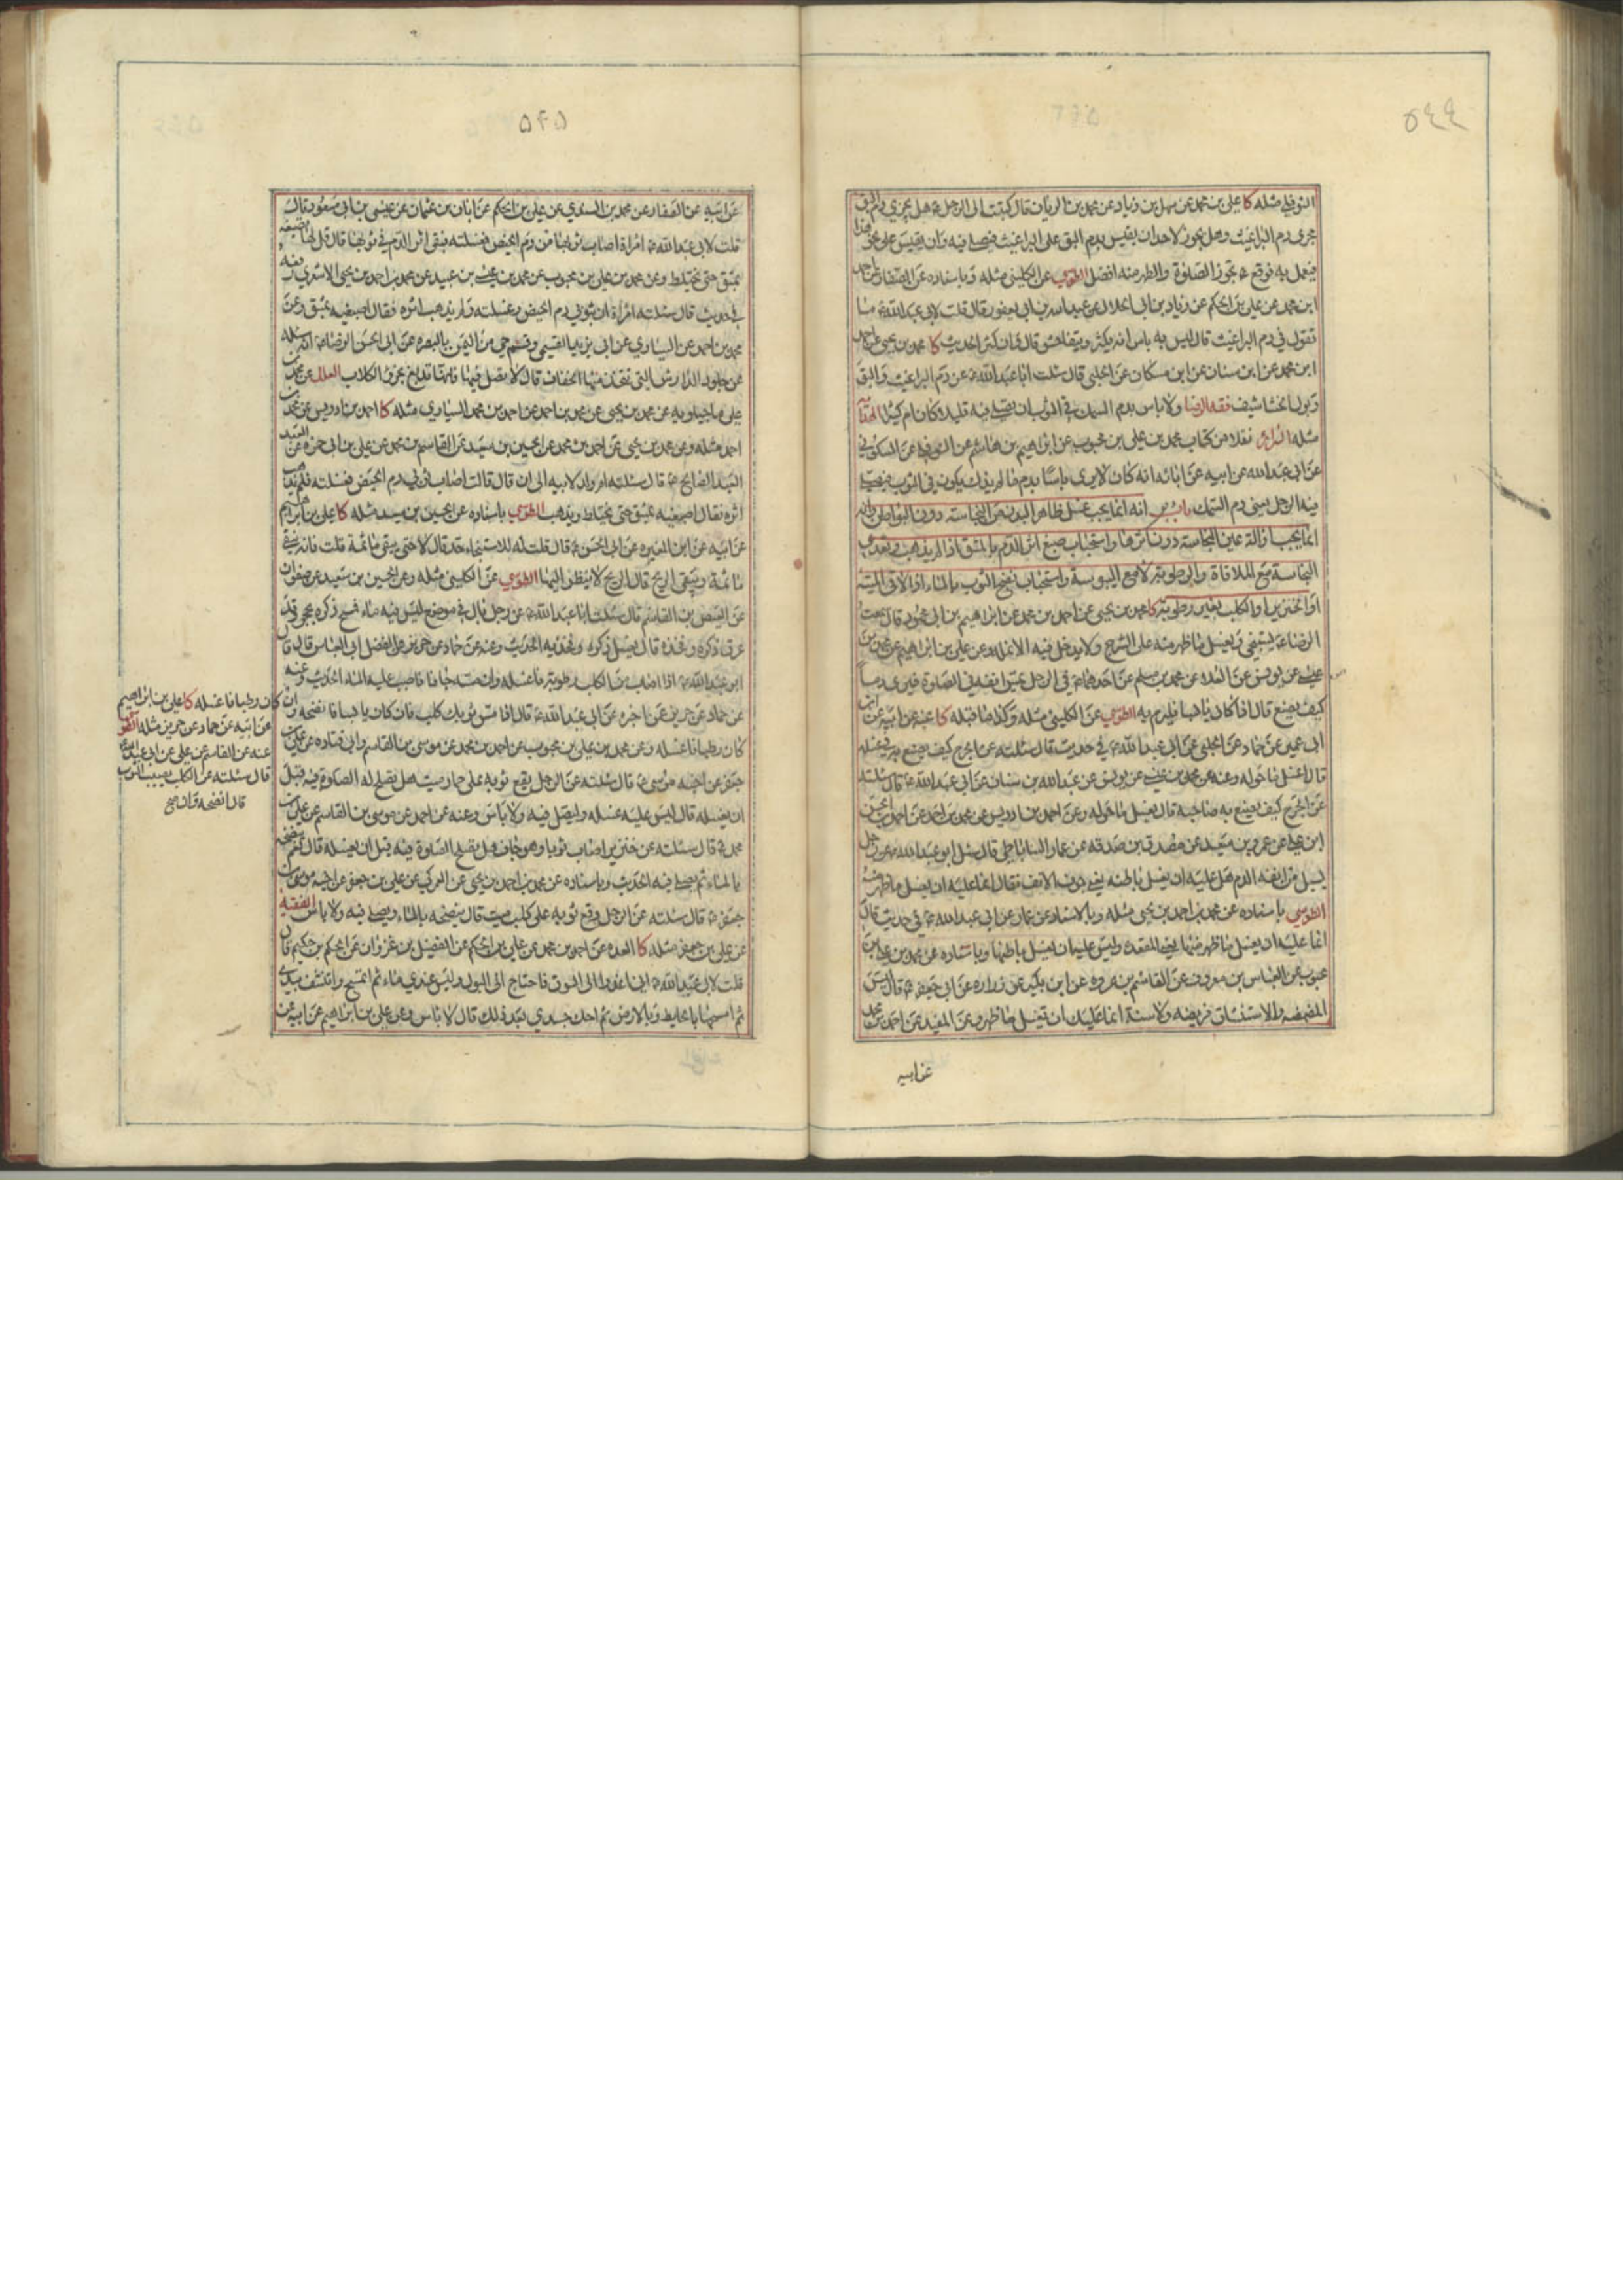 ٥٤٤
النوفلي مثله كا علي بن محمد عن سهل بن زياد عن محمد بن الريان قال كتبت الى الرجل ع هل يجري دم البق
مجرى دم البراغيث وهل يجوز لاحد ان يقيس بدم البق على البراغيث فيصلي فيه وان يقيس على نحو هذا
فيعمل به فوقع ع تجوز الصلوة والطهر منه افضل الطوسي عن الكليني مثله وباسناده عن الصفار عن احمد
ابن محمد عن علي بن الحكم عن زياد بن ابي الحلال عن عبد الله بن ابي يعفور قال قلت لابي عبد الله ع ما
تقول في دم البراغيث قال ليس به باس انه يكثر ويتفاحش قال وان كثر الحديث كا محمد بن يحيى عن احمد
ابن محمد عن ابن سنان عن ابن مسكان عن الحلبي قال سئلت ابا عبد الله ع عن دم البراغيث والبق
وبول الخشاشيف فقه الرضا ولا باس بدم السمك في الثوب ان يصلي فيه قليلا كان ام كثيرا
مثله السرائر نقلا من كتاب محمد بن علي بن محبوب عن ابراهيم بن هاشم عن النوفلي عن السكوني
عن ابي عبد الله عن ابيه عن ابائه انه كان لا يرى باسا بدم ما لم يذك يكون في الثوب فيصلي
فيه الرجل يعني دم السمك باب انه انما يجب غسل ظاهر البدن من النجاسة دون البواطن وانه
انما يجب ازالة عين النجاسة دون اثرها واستحباب صبغ اثر الدم بالمشق اذا لم يذهب وتعدي
النجاسة مع الملاقاة والرطوبة لا مع اليبوسة واستحباب نضح الثوب بالماء اذا لاقى الميتة
او الخنزير او الكلب بغير رطوبة كا محمد بن يحيى عن احمد بن محمد عن ابراهيم بن ابي محمود قال سمعت
الرضا ع يستنجي ويغسل ما ظهر منه على الشرج ولا يدخل فيه الانملة وعن علي بن ابراهيم عن محمد بن
عيسى عن يونس عن العلاء عن محمد بن مسلم عن احدهما ع في الرجل يمس انفه في الصلوة فيرى دما
كيف يصنع قال اذا كان يابسا فليرم به الطوسي عن الكليني مثله وكذا ما قبله كا عنه عن ابيه عن ابن
ابي عمير عن حماد عن الحلبي عن ابي عبد الله ع في حديث قال سئلته عن الجرح كيف يصنع به في غسله
قال اغسل ما حوله وعنه عن محمد بن عيسى عن يونس عن عبد الله بن سنان عن ابي عبد الله ع قال سئلته
عن الجرح كيف يصنع به صاحبه قال يغسل ما حوله وعن احمد بن ادريس عن محمد بن احمد عن احمد بن الحسن
ابن علي عن عمرو بن سعيد عن مصدق بن صدقه عن عمار الساباطي قال سئل ابو عبد الله ع عن رجل
يسيل من انفه الدم هل عليه ان يغسل باطنه يعني جوف الانف فقال انما عليه ان يغسل ما ظهر منه
الطوسي باسناده عن محمد بن احمد بن يحيى مثله وبالاسناد عن عمار عن ابي عبد الله ع في حديث قال
انما عليه ان يغسل ما ظهر منها يعني المقعدة وليس عليه ان يغسل باطنها وباسناده عن محمد بن علي بن
محبوب عن العباس بن معروف عن القاسم بن عروه عن ابن بكير عن زراره عن ابي جعفر ع قال ليس
المضمضه والاستنشاق فريضه ولا سنة انما عليك ان تغسل ما ظهر وعن المفيد عن احمد بن محمد
عن ابيه
٥۴۵
عن ابيه عن الصفار عن محمد بن السندي عن علي بن الحكم عن ابان بن عثمان عن عيسى بن ابي منصور قال
قلت لابي عبد الله ع امراة اصاب ثوبها من دم الحيض فغسلته فبقي اثر الدم في ثوبها قال قل لها تصبغه
بمشق حتى يختلط وعن محمد بن علي بن محبوب عن محمد بن عيسى بن عبيد عن محمد بن احمد بن يحيى الاشعري رفعه
في حديث قال سئلته امراة ان بثوبي دم الحيض وغسلته ولم يذهب اثره فقال اصبغيه بمشق وعن
محمد بن احمد عن السياري عن ابي يزيد القسمي وقسم حي من اليمن بالبصره عن ابي الحسن الرضا ع انه سئله
عن جلود الدارش التي نتخذ منها الخفاف قال لا تصل فيها فانها تدبغ بخرؤ الكلاب العلل عن محمد بن
علي ماجيلويه عن محمد بن يحيى عن محمد بن احمد عن احمد بن محمد السياري مثله كا احمد بن ادريس عن محمد بن
احمد مثله وعن محمد بن يحيى عن احمد بن محمد عن الحسين بن سعيد عن القاسم بن محمد عن علي بن ابي حمزه عن العبد
العبد الصالح ع قال سئلته ام ولد لابيه الى ان قال قالت اصاب ثوبي دم الحيض فغسلته فلم يذهب
اثره فقال اصبغيه بمشق حتى يختلط ويذهب الطوسي باسناده عن الحسين بن سعيد مثله كا علي بن ابراهيم
عن ابيه عن ابن المغيره عن ابي الحسن ع قال قلت له للاستنجاء حد قال لا حتى ينقى ما ثمة قلت فانه ينقى
ما ثمة ويبقى الريح قال الريح لا ينظر اليها الطوسي عن الكليني مثله وعن الحسين بن سعيد عن صفوان
عن العيص بن القاسم قال سئلت ابا عبد الله ع عن رجل بال في موضع ليس فيه ماء فمسح ذكره بحجر وقد
عرق ذكره وفخذه قال يغسل ذكره وفخذيه الحديث وعنه عن حماد عن حريز عن الفضل ابي العباس قال قال
ابو عبد الله ع اذا اصاب ثوبك من الكلب رطوبة فاغسله وان مسه جافا فاصبب عليه الماء الحديث وعنه
عن حماد عن حريز عمن اخبره عن ابي عبد الله ع قال اذا مس ثوبك كلب فان كان يابسا فانضحه وان
كان رطبا فاغسله وعن محمد بن علي بن محبوب عن احمد بن محمد عن موسى بن القاسم وابي قتاده عن علي بن
جعفر عن اخيه موسى ع قال سئلته عن الرجل يقع ثوبه على حمار ميت هل يصلح له الصلوة فيه قبل
ان يغسله قال ليس عليه غسله وليصل فيه ولا باس وعنه عن احمد عن موسى بن القاسم عن علي بن
محمد ع قال سئلته عن خنزير اصاب ثوبا وهو جاف هل يصلح الصلوة فيه قبل ان يغسله قال نعم ينضحه
بالماء ثم يصلي فيه الحديث وباسناده عن محمد بن احمد بن يحيى عن العمركي عن علي بن جعفر عن اخيه موسى بن
جعفر ع قال سئلته عن الرجل وقع ثوبه على كلب ميت قال ينضحه بالماء ويصلي فيه ولا باس الفقيه
عن علي بن جعفر مثله كا العده عن احمد بن محمد عن علي بن الحكم عن الفضيل بن غزوان عن الحكم بن حكيم قال
قلت لابي عبد الله ع اني اغدو الى السوق فاحتاج الى البول وليس عندي ماء ثم اتمسح واتنشف بيدي
ثم امسحها بالحايط وبالارض ثم احك جسدي بعد ذلك قال لا باس وعن علي بن ابراهيم عن ابيه عن
ان كان رطبا فاغسله كا علي بن ابراهيم
عن ابيه عن حماد عن حريز مثله
عنه عن القاسم عن علي عن ابي عبد الله ع
قال سئلته عن الكلب يصيب الثوب
قال انضحه وان صح